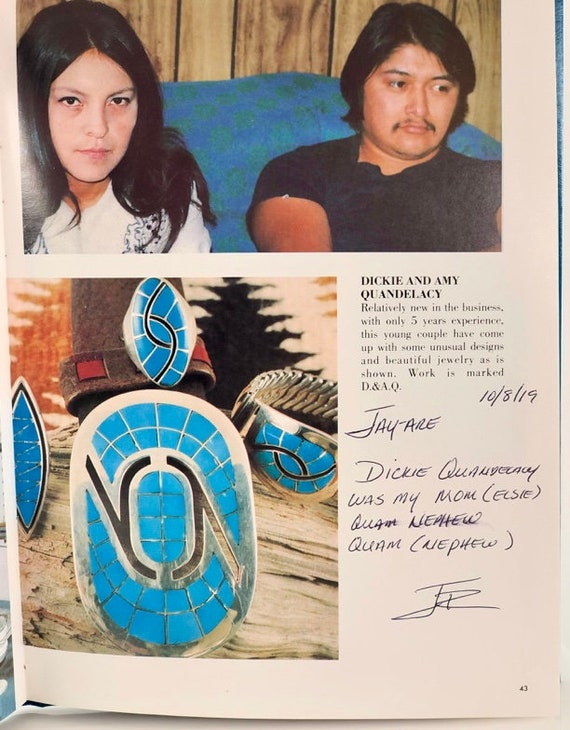 DICKIE AND AMY
QUANDELACY
Relatively new in the business,
with only 5 years experience,
this young couple have come
up with some unusual designs
and beautiful jewelry as is
shown. Work is marked
D.&A.Q.
10/8/19
JAY-ARE
DICKIE QUANDELACY
WAS MY MOM (ELSIE)
QUAM NEPHEW
QUAM (NEPHEW)
43